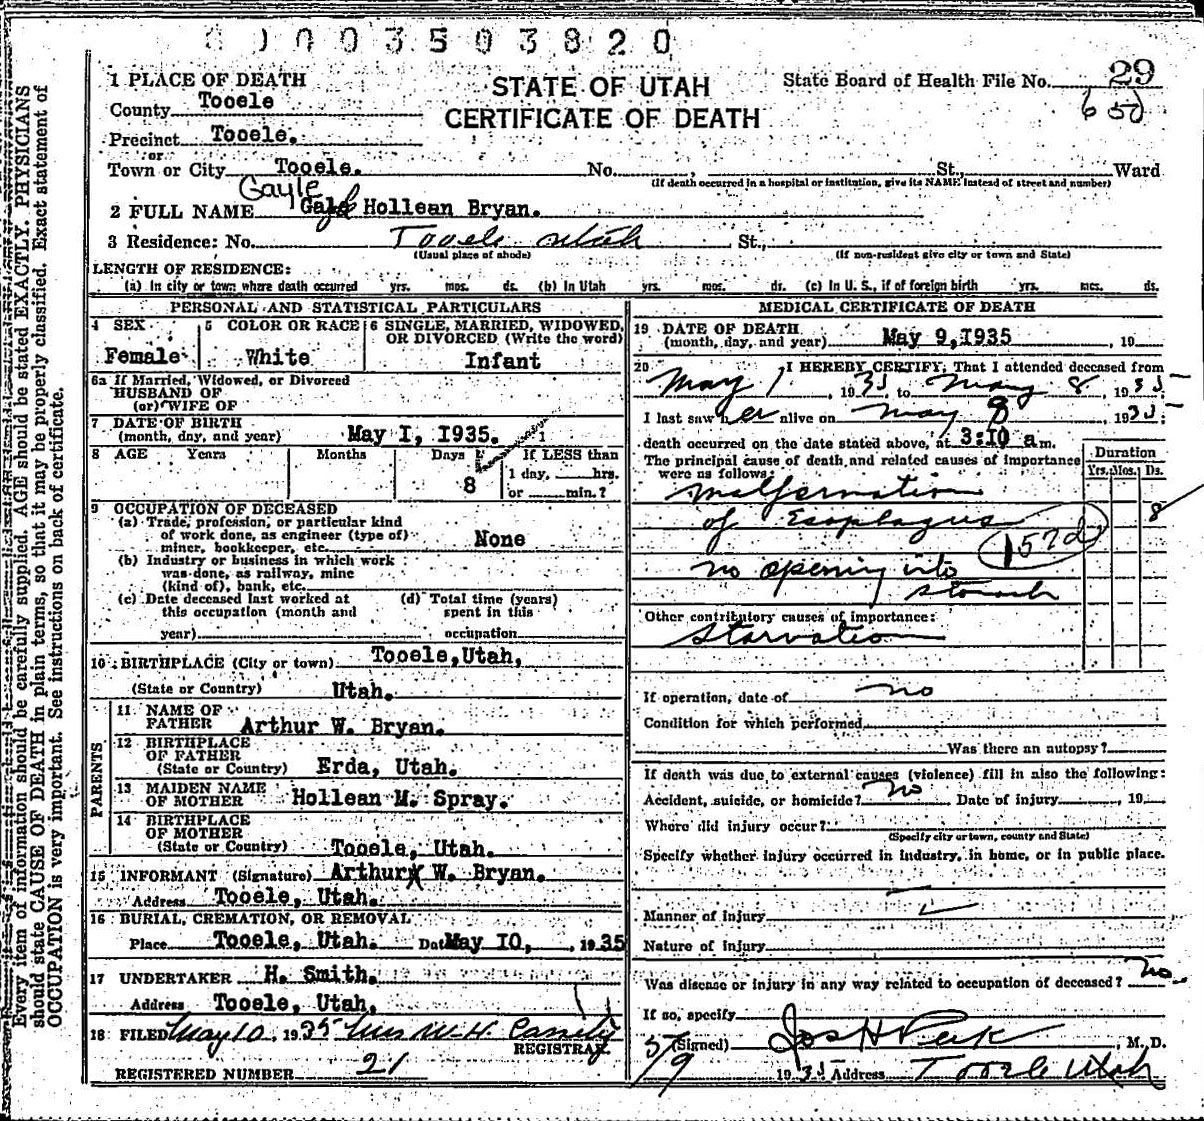 0 0 0 3 5 0 3 8 2 0
1 PLACE OF DEATH
County Tooele
Precinct Tooele.
or
Town or City Tooele. No. , St., Ward
(If death occurred in a hospital or institution, give its NAME instead of street and number)
STATE OF UTAH
CERTIFICATE OF DEATH
State Board of Health File No. 29
650
Gayle
2 FULL NAME Hollean Bryan.
3 Residence: No. Tooele Utah St.,
(Usual place of abode) (If non-resident give city or town and State)
LENGTH OF RESIDENCE:
(a) In city or town where death occurred yrs. mos. ds. (b) In Utah yrs. mos. ds. (c) In U. S., if of foreign birth yrs. mos. ds.
PERSONAL AND STATISTICAL PARTICULARS
4 SEX 5 COLOR OR RACE 6 SINGLE, MARRIED, WIDOWED,
OR DIVORCED (Write the word)
Female White Infant
6a If Married, Widowed, or Divorced
HUSBAND OF
(or) WIFE OF
7 DATE OF BIRTH
(month, day, and year) May I, I935.
8 AGE Years Months Days If LESS than
1 day, hrs.
8 or min.?
9 OCCUPATION OF DECEASED
(a) Trade, profession, or particular kind
of work done, as engineer (type of)
miner, bookkeeper, etc. None
(b) Industry or business in which work
was done, as railway, mine
(kind of), bank, etc.
(c) Date deceased last worked at (d) Total time (years)
this occupation (month and spent in this
year) occupation
10 BIRTHPLACE (City or town) Tooele, Utah,
(State or Country) Utah.
PARENTS
11 NAME OF
FATHER Arthur W. Bryan.
12 BIRTHPLACE
OF FATHER
(State or Country) Erda, Utah.
13 MAIDEN NAME
OF MOTHER Hollean M. Spray.
14 BIRTHPLACE
OF MOTHER
(State or Country) Tooele, Utah.
15 INFORMANT (Signature) Arthur W. Bryan.
Address Tooele, Utah.
16 BURIAL, CREMATION, OR REMOVAL
Place Tooele, Utah. Date May IO, , 1935
17 UNDERTAKER H. Smith.
Address Tooele, Utah,
18 FILED May 10, 1935 Mrs W. H. Cassity
REGISTRAR.
REGISTERED NUMBER 21
MEDICAL CERTIFICATE OF DEATH
19 DATE OF DEATH
(month, day, and year) May 9, I935 , 19
20 I HEREBY CERTIFY, That I attended deceased from
May 1, 1935, to May 8, 1935
I last saw her alive on May 8 1935;
death occurred on the date stated above, at 3:10 am.
The principal cause of death and related causes of importance
were as follows:
Duration
Yrs. Mos. Ds.
Malformation
of Esophagus 8
157d
no opening into
stomach
Other contributory causes of importance:
Starvation
If operation, date of no
Condition for which performed
Was there an autopsy?
If death was due to external causes (violence) fill in also the following:
Accident, suicide, or homicide? no Date of injury , 19
Where did injury occur?
(Specify city or town, county and State)
Specify whether injury occurred in industry, in home, or in public place.
Manner of injury
Nature of injury
Was disease or injury in any way related to occupation of deceased? no
If so, specify
(Signed) Jos H Peck , M. D.
5/9 1935 Address Tooele Utah
Every item of information should be carefully supplied. AGE should be stated EXACTLY. PHYSICIANS
should state CAUSE OF DEATH in plain terms, so that it may be properly classified. Exact statement of
OCCUPATION is very important. See instructions on back of certificate.